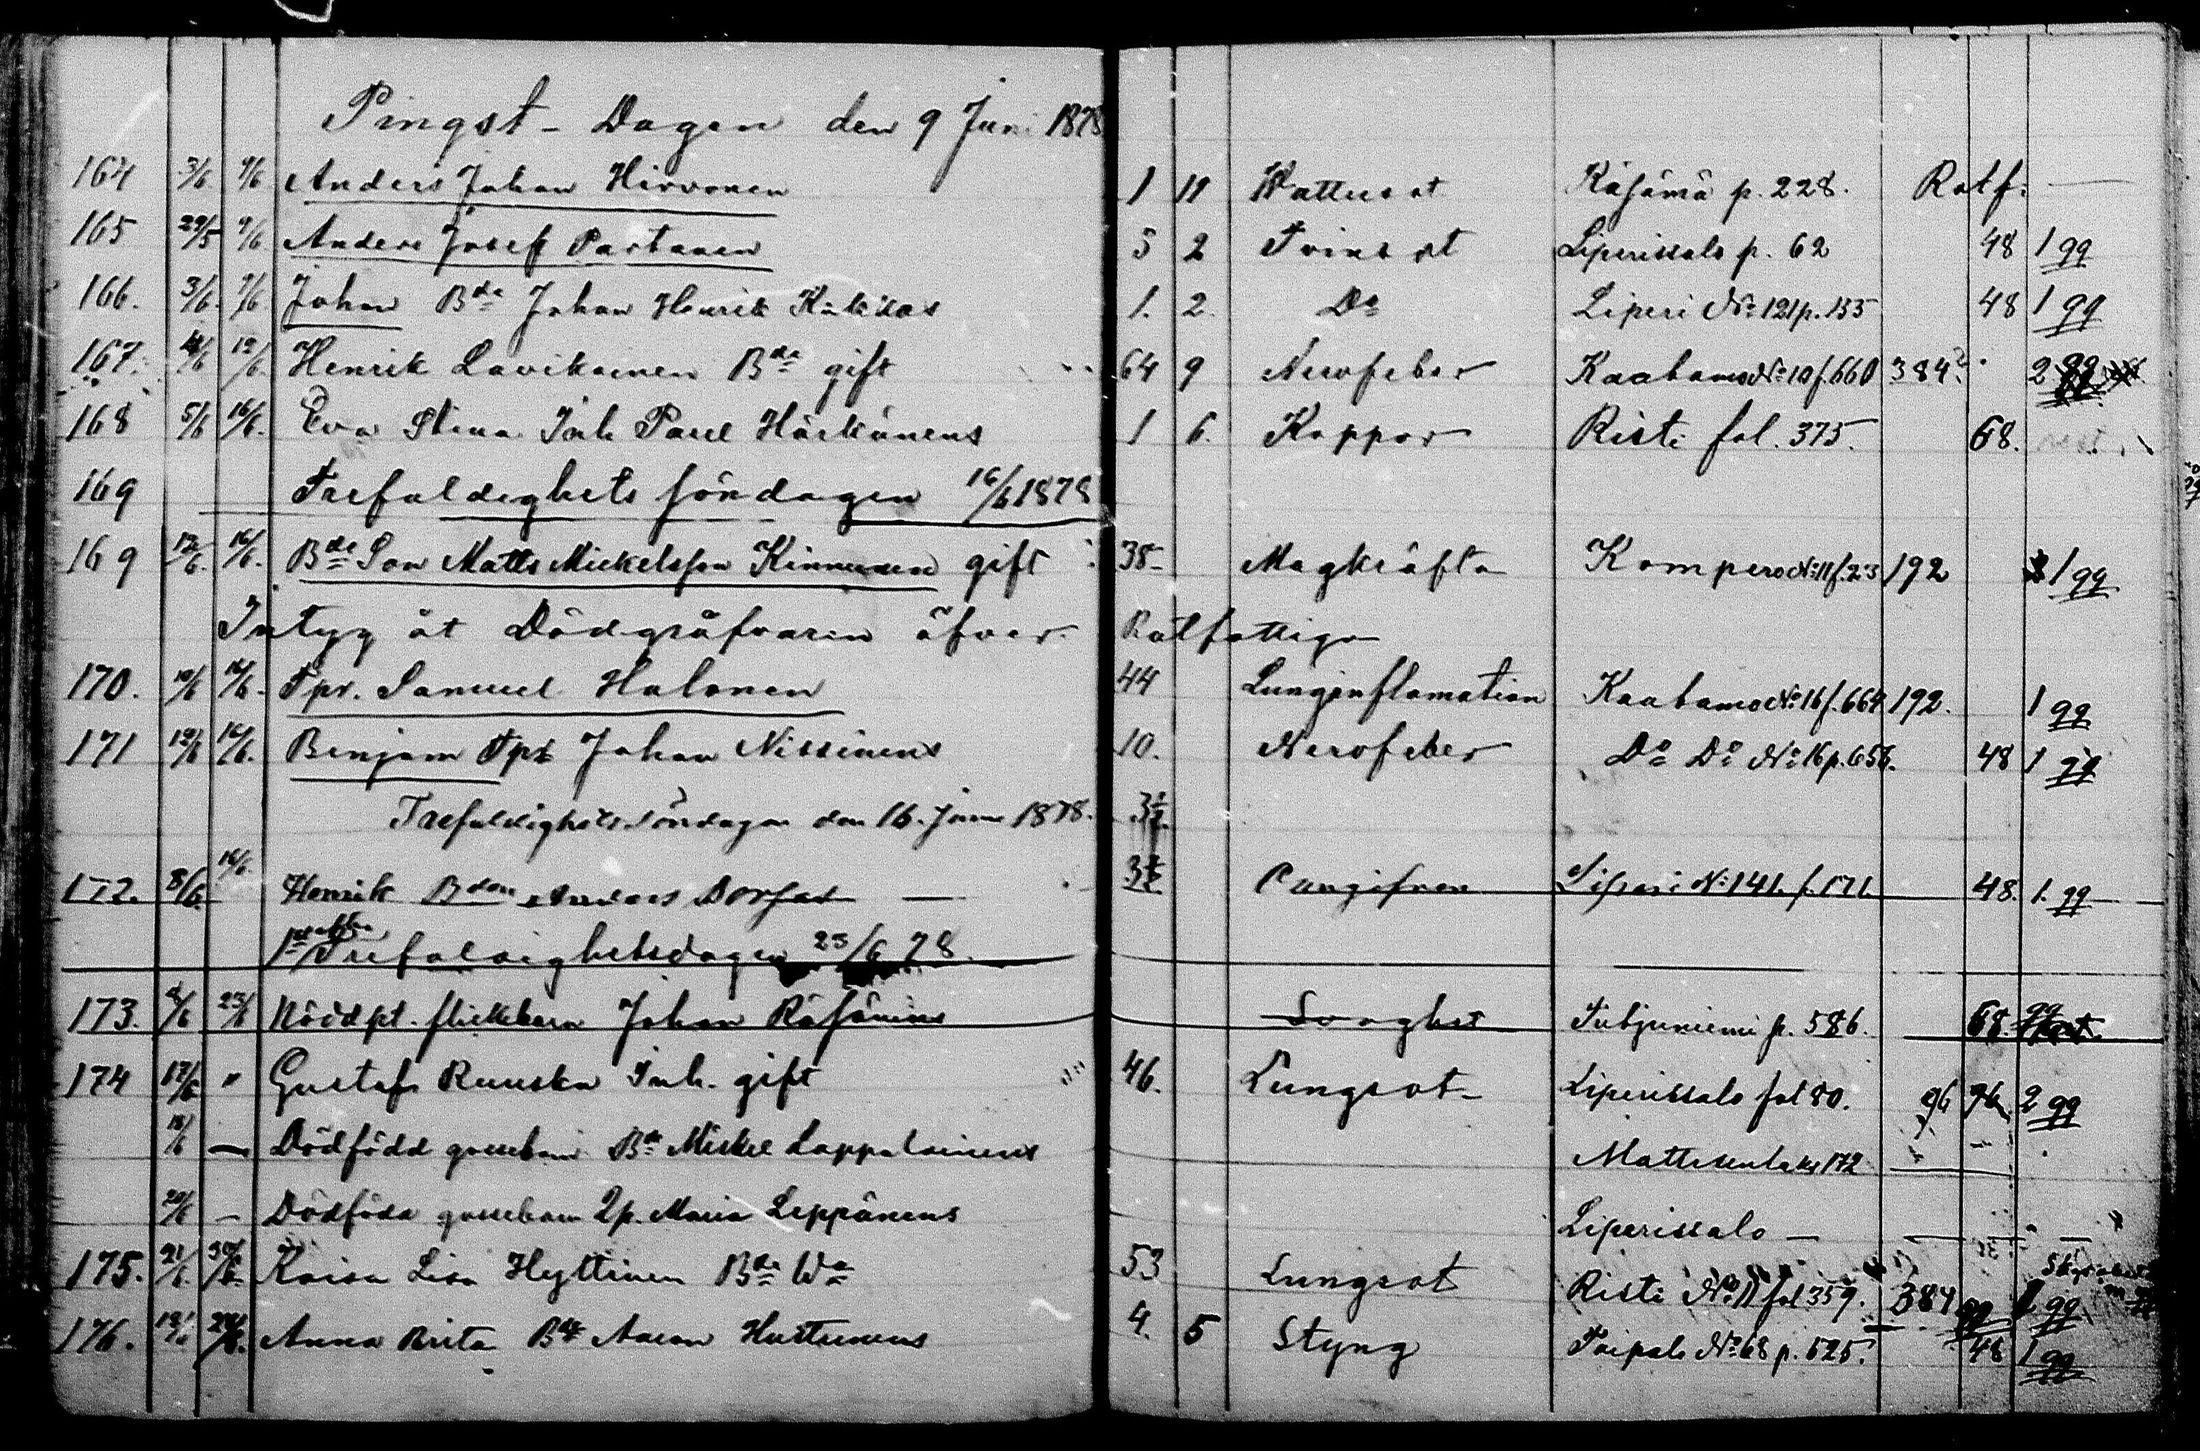 Pingst-Dagen den 9 Juni 1878
164 3/6 9/6 Anders Johan Hirvonen 1 11 Wattusot Räsämä p. 228. Rotf. —
165 29/5 9/6 Anders Josef Partanen 5 2 Tvinsot Liperissalo p. 62 48 1 gg
166. 3/6. 9/6 Johan Bde Johan Henrik 1. 2. Do Liperi No 121 p. 155 48 1 gg
167. Henrik Lavikainen Bde gift 64 9 Nervfeber Kaatamo No 10 f. 660 384 2 gg
168 5/6 16/6. Eva Stina Inh Paul Härkänens 1 6. Koppor Risti fol. 375. 68.
169 Trefaldighets söndagen 16/6 1878
169 12/6. 16/6. Bde Son Matts Mickelsson Kinnunen gift 38 Magkräfta Kompero No 11 f. 23 192 1 gg
Intyg åt Dödgräfvaren öfver Rotfattige
170. 10/6 16/6. Tpr. Samuel Halonen 44 Lunginflamation Kaatamo No 16 f. 664 192. 1 gg
171 12/6 16/6. Benjam Tpr Johan Nissinens 10. Nervfeber Do Do No 16 p. 656. 48 1 gg
Trefaldighets söndagen den 16. Juni 1878.
172. 8/6 16/6. Henrik Bden Anders — Liperi No 141. f. 171 48. 1. gg
Trefaldighetsdagen 23/6 78.
173. 23/6 Nöddpt. flickebarn Johan Räsänens Svaghet p. 586. 68. gg
174 17/6 " Gustaf Ruuska Inh. gift 46. Lungsot Liperissalo fol 80. 96 96 2 gg
18/6 — Dödfödd gossebarn Bde Mickel Lappalainens 172
20/6 — Dödföda gossebarn Qp. Maria Leppänens Liperissalo —
175. 21/6. Kaisa Lisa Hyttinen Bde Wa 53 Lungsot Risti No 11 fol 359. 384 gg
176. Anna Brita Bde 4. 5 Styng Taipale No 68 p. 525. 48 1 gg